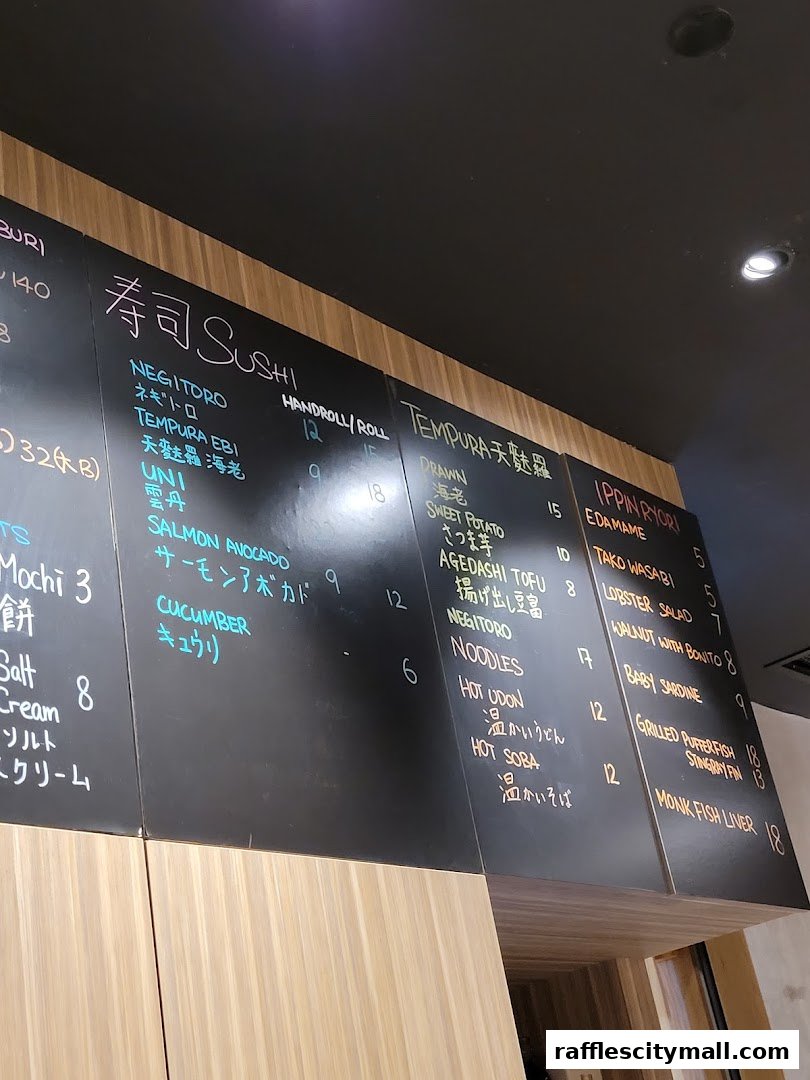 BURI
140
8
32(大B)
TS
Mochi 3
餅
Salt
Cream 8
ソルト
スクリーム
寿司 SUSHI
HANDROLL/ROLL
NEGITORO 12 15
ネギトロ
TEMPURA EBI 9 18
天麩羅 海老
UNI
雲丹
SALMON AVOCADO 9 12
サーモンアボカド
CUCUMBER - 6
キュウリ
TEMPURA 天麩羅
PRAWN 15
海老
SWEET POTATO 10
さつま芋
AGEDASHI TOFU 8
揚げ出し豆富
NEGITORO 17
NOODLES
HOT UDON 12
温かいうどん
HOT SOBA 12
温かいそば
IPPIN RYORI
EDAMAME 5
TAKO WASABI 5
LOBSTER SALAD 7
WALNUT WITH BONITO 8
BABY SARDINE 9
GRILLED PUFFERFISH 18
STINGRAY FIN 13
MONK FISH LIVER 18
rafflescitymall.com